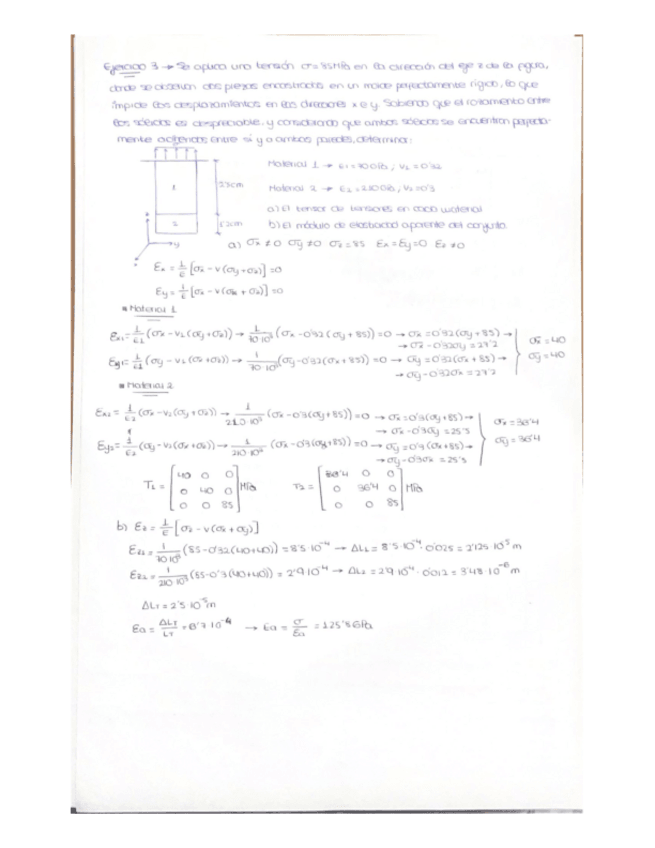 Ejercicio 3 → Se aplica una tensión σ=85MPa en la dirección del eje z de la figura,
donde se observan dos piezas encastradas en un molde perfectamente rígido, lo que
impide los desplazamientos en las direcciones x e y. Sabiendo que el rozamiento entre
los sólidos es despreciable, y considerando que ambos sólidos se encuentran perfecta-
mente adheridos entre sí y a ambas paredes, determinar:
Material 1 → E1=70GPa, V1=0'32
1
2'5cm
Material 2 → E2=210GPa, V2=0'3
a) El tensor de tensiones en cada material
2
1'2cm
b) El módulo de elasticidad aparente del conjunto.
y
a) σx≠0 σy≠0 σz=85 Ex=Ey=0 Ez≠0
Ex = 1/E [σx-V(σy+σz)]=0
Ey = 1/E [σx-V(σx+σz)]=0
Material 1
Ex1= 1/E1 (σx-V1(σy+σz)) → 1/70·10³ (σx-0'32(σy+85))=0 → σx=0'32(σy+85) →
→ σx-0'32σy=27'2
σx=40
Ey1= 1/E1 (σy-V1(σx+σz)) → 1/70·10³ (σy-0'32(σx+85))=0 → σy=0'32(σx+85) →
→ σy-0'32σx=27'2
σy=40
Material 2
Ex2= 1/E2 (σx-V2(σy+σz)) → 1/210·10³ (σx-0'3(σy+85))=0 → σx=0'3(σy+85) →
→ σx-0'3σy=25'5
σx=36'4
Ey2= 1/E2 (σy-V2(σx+σz)) → 1/210·10³ (σy-0'3(σx+85))=0 → σy=0'4(σx+85) →
→ σy-0'3σx=25'5
σy=36'4
T1= [40 0 0
0 40 0
0 0 85] MPa
T2= [36'4 0 0
0 36'4 0
0 0 85] MPa
b) Ez= 1/E [σz-V(σx+σy)]
Ez1= 1/70·10³ (85-0'32(40+40))=8'5·10⁻⁴ → ΔL1=8'5·10⁻⁴·0'025=2'125·10⁻⁵m
Ez2= 1/210·10³ (85-0'3(40+40))=2'9·10⁻⁴ → ΔL2=2'9·10⁻⁴·0'012=3'48·10⁻⁶m
ΔLT=2'5·10⁻⁵m
Ea= ΔLT/LT =6'7·10⁻⁴ → Ea= σ/Ea =125'8GPa